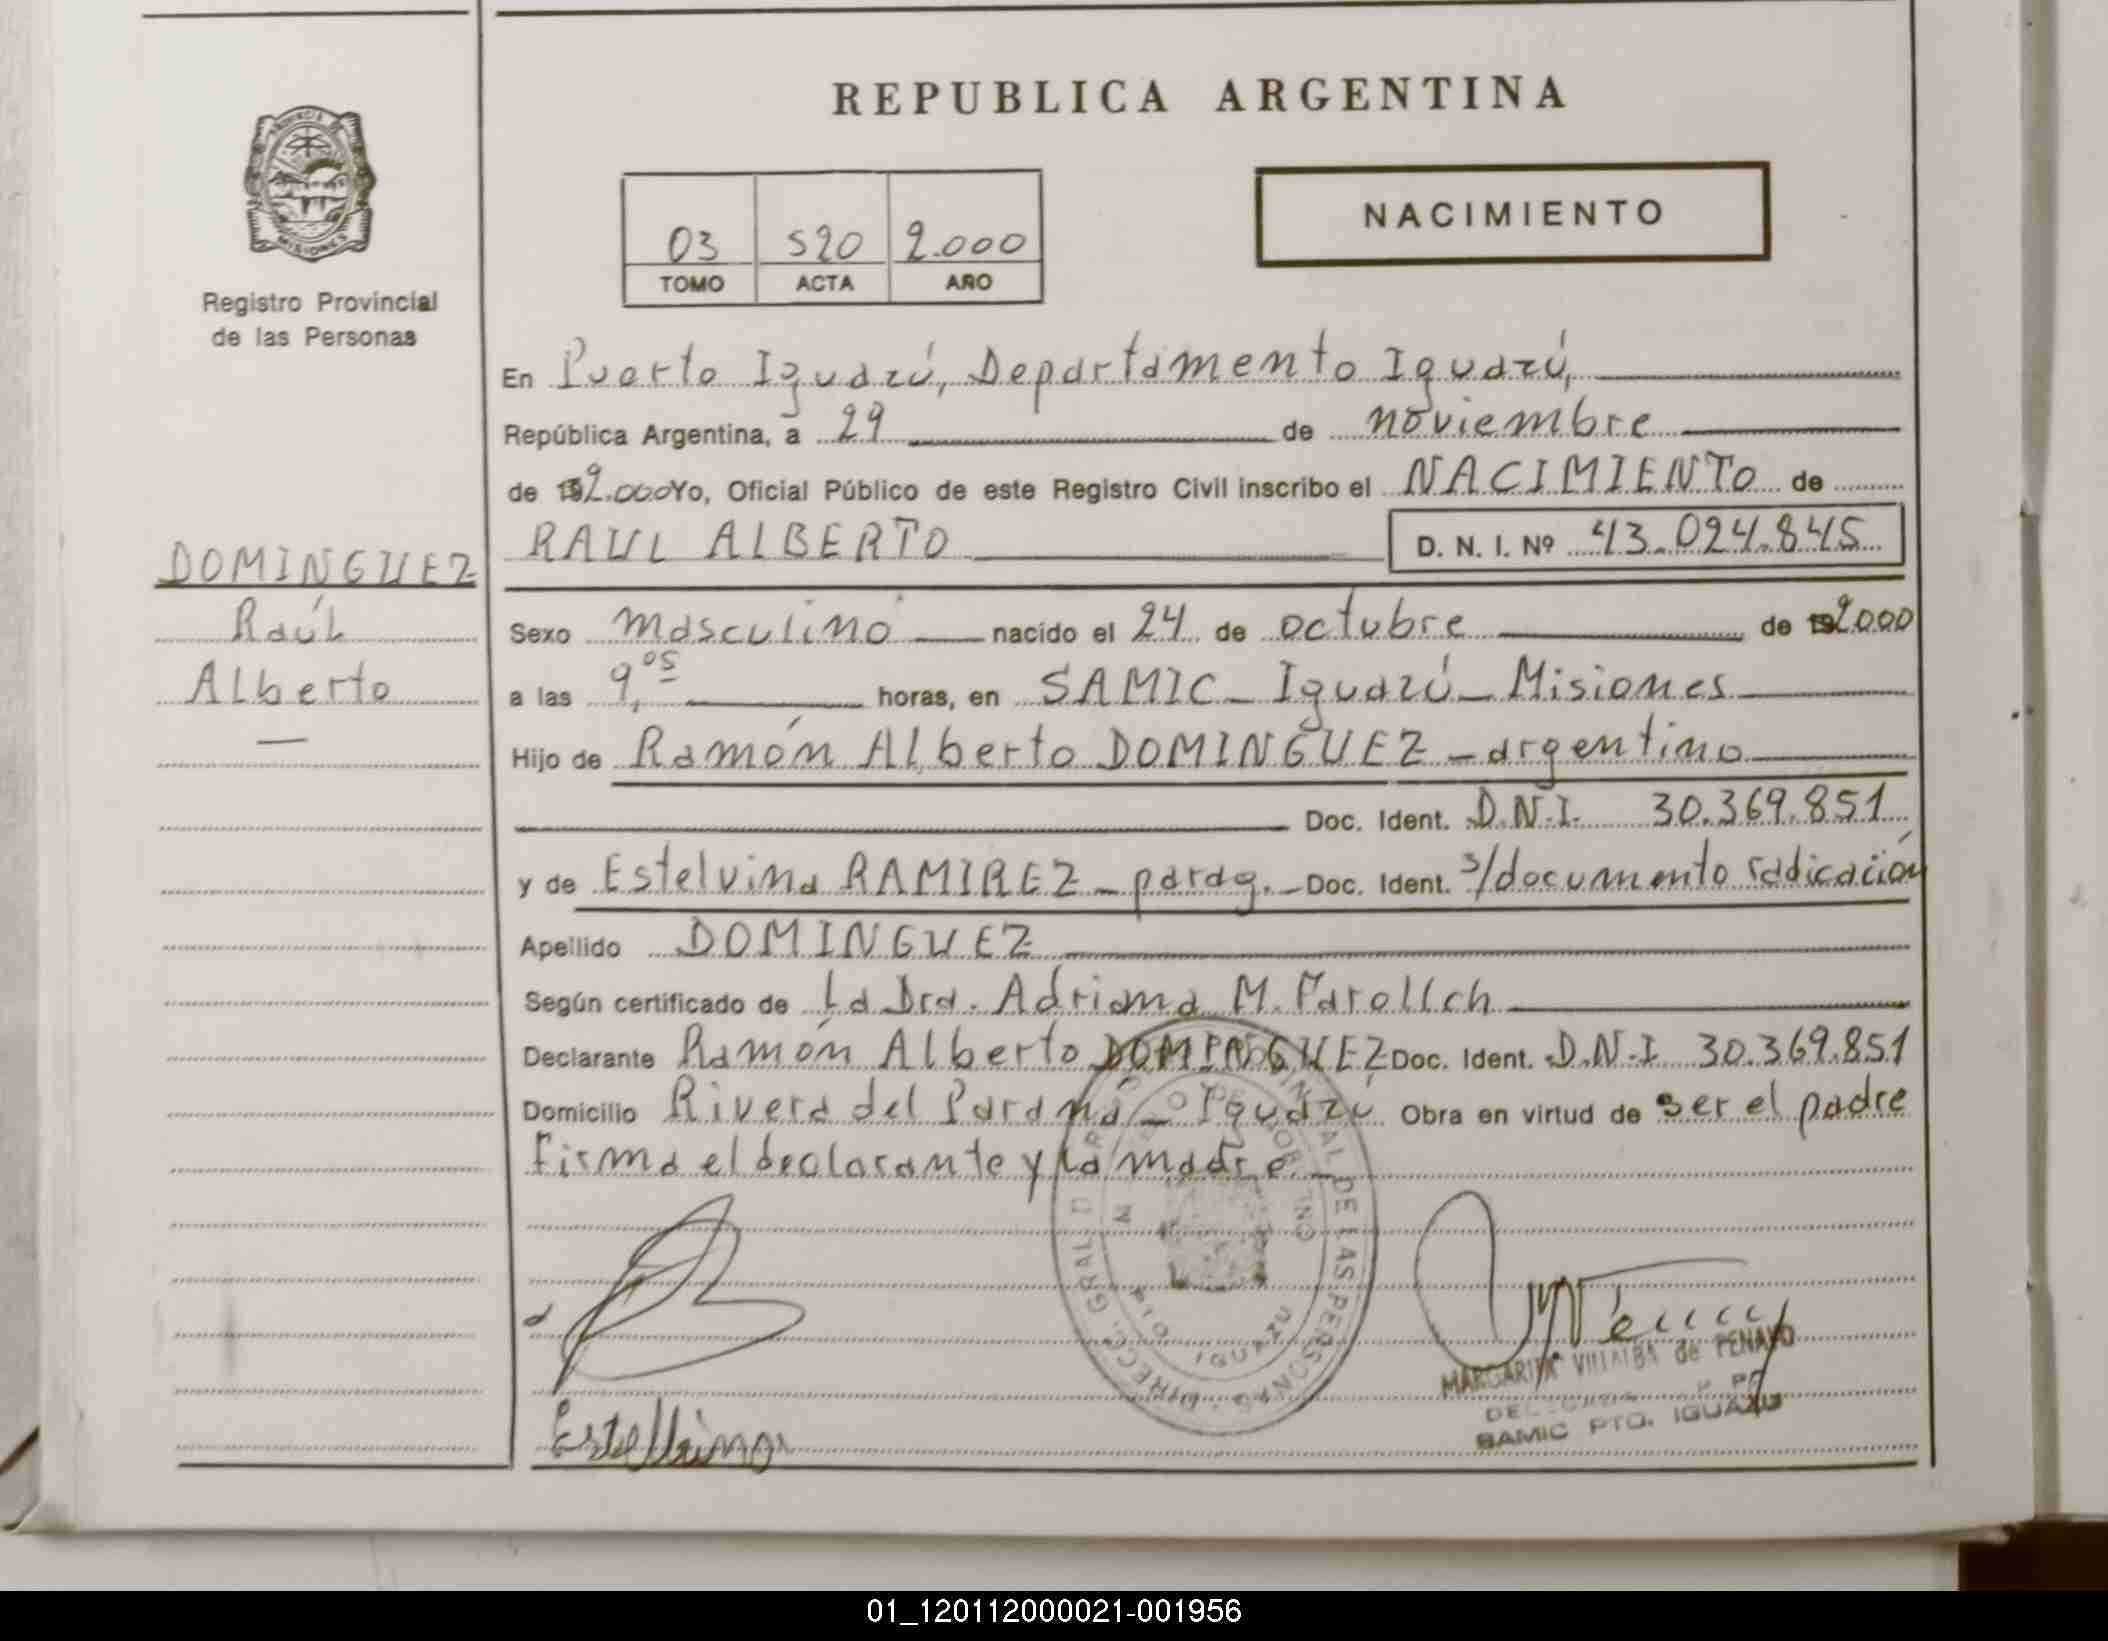 REPUBLICA ARGENTINA
PROVINCIA DE
MISIONES
Registro Provincial
de las Personas
03 520 2.000
TOMO ACTA AÑO
NACIMIENTO
En Puerto Iguazú, Departamento Iguazú,
República Argentina, a 29 de noviembre
de 192.000 Yo, Oficial Público de este Registro Civil inscribo el NACIMIENTO de
RAUL ALBERTO D. N. I. Nº 43.024.845
DOMINGUEZ
Raúl
Alberto
Sexo masculino nacido el 24 de octubre de 192000
a las 9,05 horas, en SAMIC - Iguazú - Misiones
Hijo de Ramón Alberto DOMINGUEZ - argentino
Doc. Ident. D.N.I. 30.369.851
y de Estelvina RAMIREZ - parag. - Doc. Ident. s/documento radicación
Apellido DOMINGUEZ
Según certificado de La Dra. Adriana M.
Declarante Ramón Alberto DOMINGUEZ Doc. Ident. D.N.I 30.369.851
Domicilio Rivera del Paraná - Iguazú Obra en virtud de ser el padre
Firma el declarante y la madre. -
DIRECC. GRAL. DEL REG. PROVINCIAL DE LAS PERSONAS
IGUAZU
Estelbina
MARGARITA VILLALBA de PENAYO
SAMIC PTO. IGUAZU
01_120112000021-001956